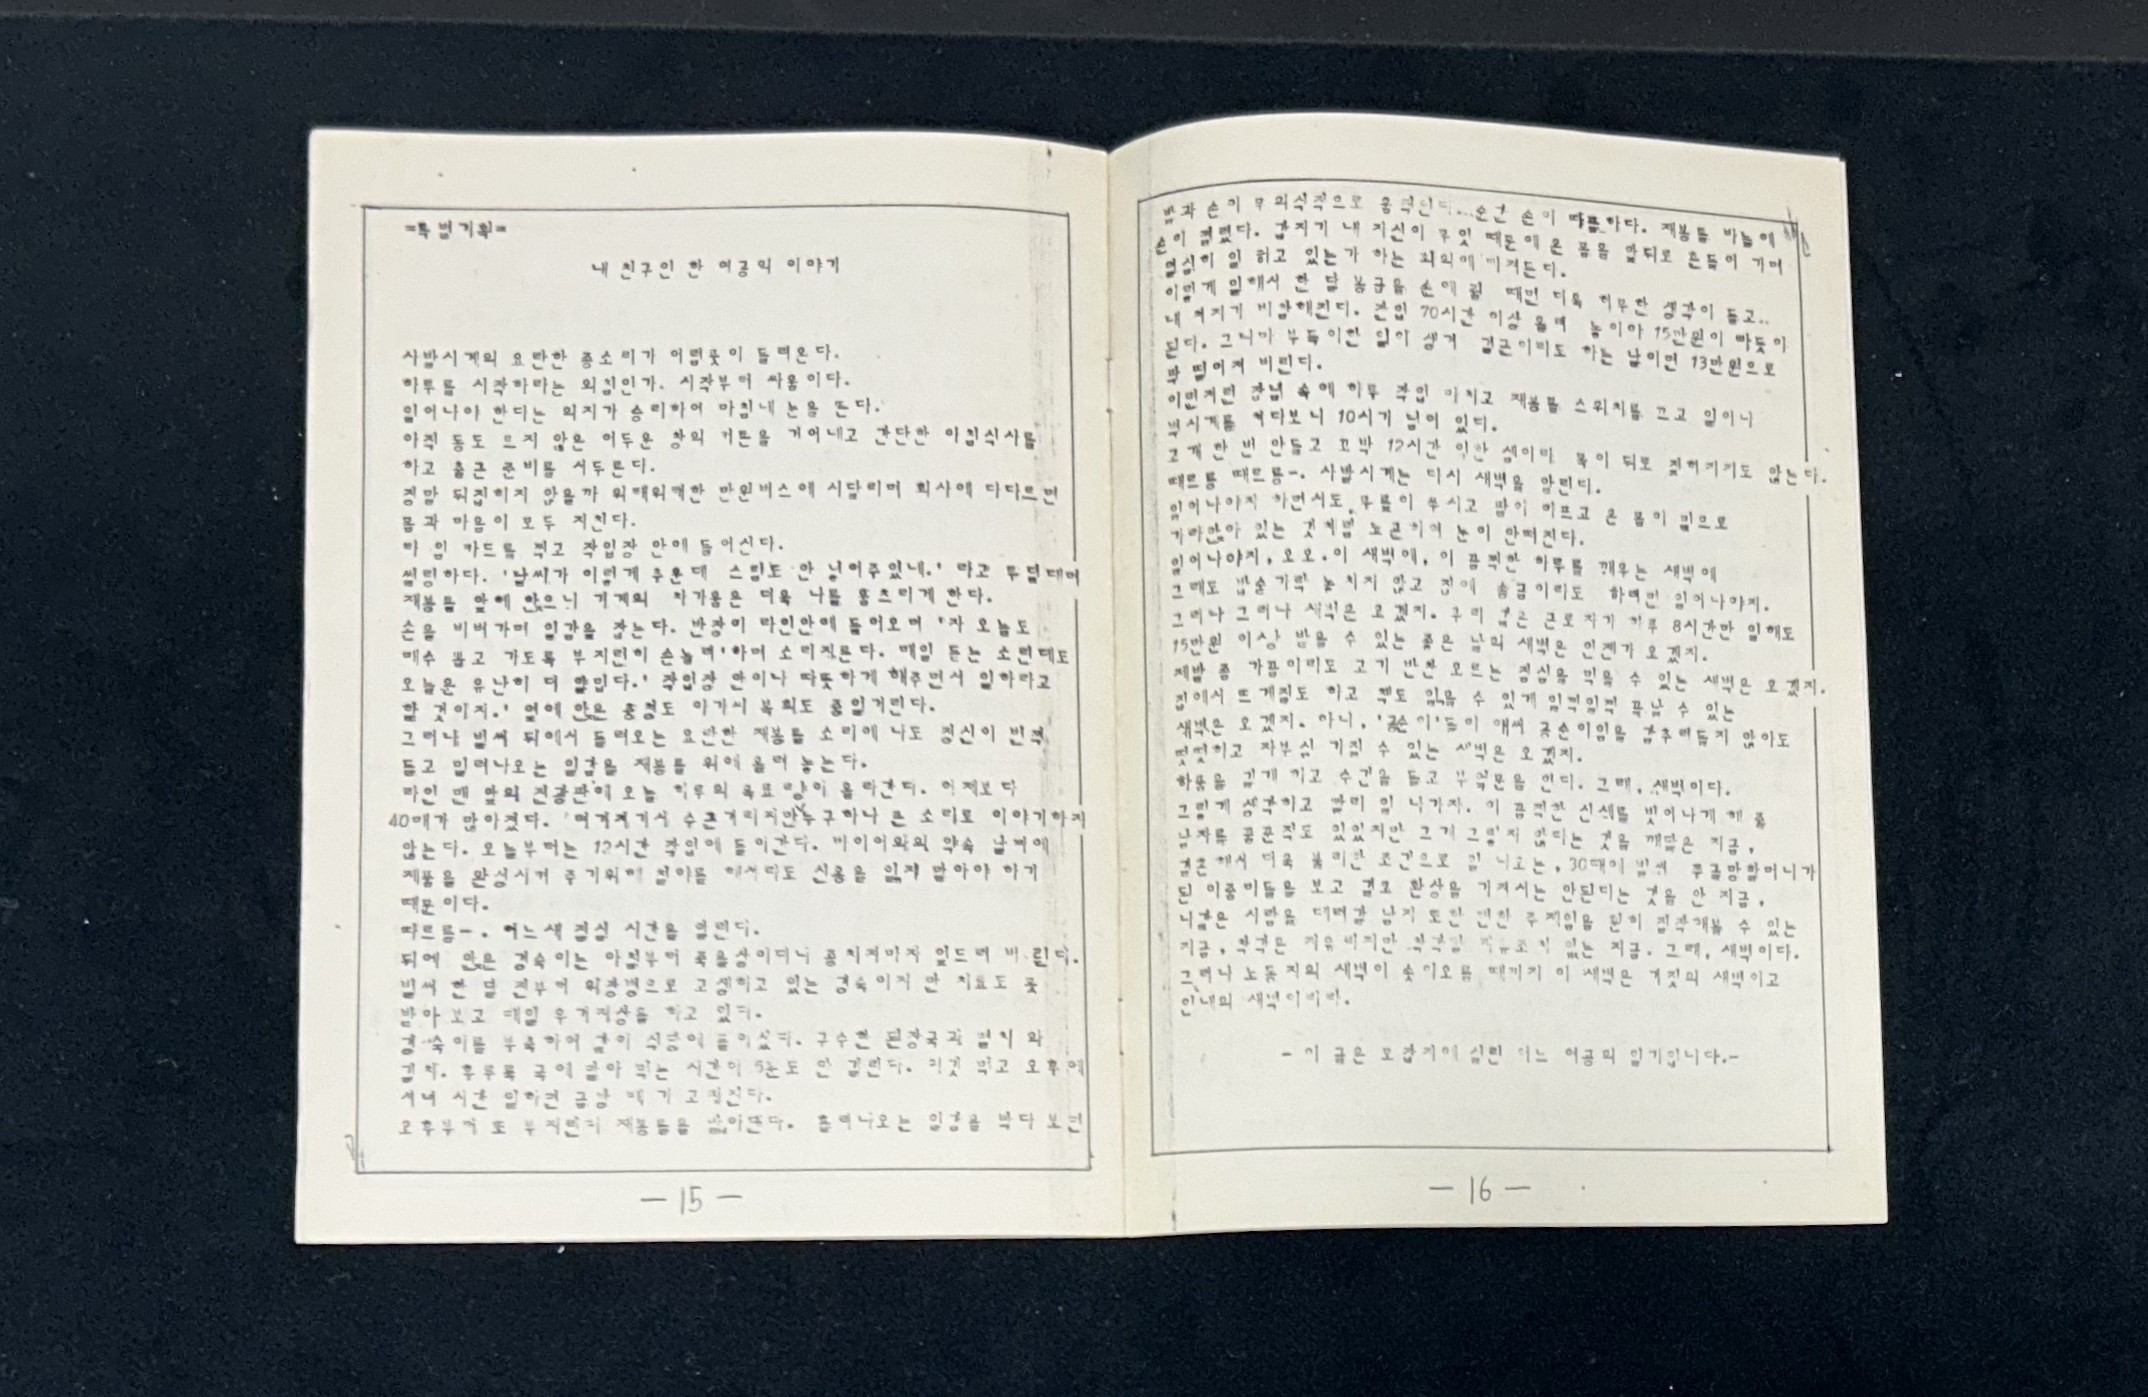 =특별기획=
내 친구인 한 여공의 이야기
사발시계의 요란한 종소리가 어렴풋이 들려온다.
하루를 시작하라는 외침인가. 시작부터 싸움이다.
일어나야 한다는 의지가 승리하여 마침내 눈을 뜬다.
아직 동도 트지 않은 어두운 창의 커튼을 걷어내고 간단한 아침식사를
하고 출근 준비를 서두른다.
정말 뒤집히지 않을까 위태위태한 만원버스에 시달리며 회사에 다다르면
몸과 마음이 모두 지친다.
타 임 카드를 찍고 작업장 안에 들어선다.
썰렁하다. '날씨가 이렇게 추운데 스팀도 안 넣어주었네.' 라고 투덜대며
재봉틀 앞에 앉으니 기계의 차가움은 더욱 나를 움츠리게 한다.
손을 비벼가며 일감을 잡는다. 반장이 라인안에 들어오며 '자 오늘도
매수 뽑고 가도록 부지런히 손놀려'하며 소리지른다. 매일 듣는 소린데도
오늘은 유난히 더 얄밉다.' 작업장 안이나 따뜻하게 해주면서 일하라고
할 것이지.' 옆에 앉은 충청도 아가씨 복희도 중얼거린다.
그러나 벌써 뒤에서 들려오는 요란한 재봉틀 소리에 나도 정신이 번쩍
들고 밀려나오는 일감을 재봉틀 위에 올려 놓는다.
라인 맨 앞의 전광판에 오늘 하루의 목표량이 올라간다. 어제보다
40매가 많아졌다. 여기저기서 수근거리지만 누구하나 큰 소리로 이야기하지
않는다. 오늘부터는 12시간 작업에 들어간다. 바이어와의 약속 날짜에
제품을 완성시켜 주기위해 철야를 해서라도 신용을 잃지 말아야 하기
때문이다.
따르릉-. 어느새 점심 시간을 알린다.
뒤에 앉은 경숙이는 아침부터 죽을상이더니 종치자마자 엎드려 버린다.
벌써 한 달 전부터 위장병으로 고생하고 있는 경숙이지만 치료도 못
받아 보고 매일 우거지상을 하고 있다.
경숙이를 부축하여 같이 식당에 들어섰다. 구수한 된장국과 밥의 와
김치. 후루룩 국에 말아 먹는 시간이 5분도 안 걸린다. 이것 먹고 오후에
서너 시간 일하면 금방 배가 고파진다.
오후부터 또 부지런히 재봉틀을 밟아댄다. 흘러나오는 일감을 박다 보면
발과 손이 무의식적으로 움직인다...순간 손이 따끔하다. 재봉틀 바늘에
손이 찔렸다. 갑자기 내 자신이 무엇 때문에 온 몸을 앞뒤로 흔들어 가며
열심히 일 하고 있는가 하는 회의에 빠져든다.
이렇게 일해서 한 달 봉급을 손에 쥘 때면 더욱 허무한 생각이 들고..
내 처지가 비참해진다. 잔업 70시간 이상 올려 놓아야 15만원이 빠듯이
된다. 그나마 부득이한 일이 생겨 결근이라도 하는 날이면 13만원으로
뚝 떨어져 버린다.
이런저런 잡념 속에 하루 작업 마치고 재봉틀 스위치를 끄고 일어나
벽시계를 쳐다보니 10시가 넘어 있다.
고개 한 번 안들고 꼬박 12시간 일한 셈이라 목이 뒤로 젖혀지지도 않는다.
때르릉 때르릉-. 사발시계는 다시 새벽을 알린다.
일어나야지 하면서도 무릎이 쑤시고 팔이 아프고 온 몸이 밑으로
가라앉아 있는 것처럼 노곤하여 눈이 안떠진다.
일어나야지, 오오.이 새벽에, 이 끔찍한 하루를 깨우는 새벽에
그래도 밥숟가락 놓치지 않고 집에 송금이라도 하려면 일어나야지.
그러나 그러나 새벽은 오겠지. 우리 같은 근로자가 하루 8시간만 일해도
15만원 이상 받을 수 있는 좋은 날의 새벽은 언젠가 오겠지.
제발 좀 가끔이라도 고기 반찬 오르는 점심을 먹을 수 있는 새벽은 오겠지.
집에서 뜨개질도 하고 책도 읽을 수 있게 일찍일찍 끝날 수 있는
새벽은 오겠지. 아니, '공순이'들이 애써 공순이임을 감추려들지 않아도
떳떳하고 자부심 가질 수 있는 새벽은 오겠지.
하품을 길게 하고 수건을 들고 부엌문을 연다. 그래, 새벽이다.
그렇게 생각하고 빨리 일 나가자. 이 끔찍한 신세를 벗어나게 해 줄
남자를 꿈꾼적도 있었지만 그게 그렇지 않다는 것을 깨달은 지금,
결혼해서 더욱 불리한 조건으로 일 나오는, 30대에 벌써 쭈글망할머니가
된 아줌마들을 보고 결코 환상을 가져서는 안된다는 것을 안 지금,
나같은 사람을 데려갈 남자 또한 뻔한 주제임을 훤히 짐작해볼 수 있는
지금, 그래, 새벽이다.
그러나 노동자의 새벽이 솟아오를 때까지 이 새벽은 거짓의 새벽이고
인내의 새벽이리라.
- 이 글은 모잡지에 실린 어느 여공의 일기입니다.-
-15-
-16-